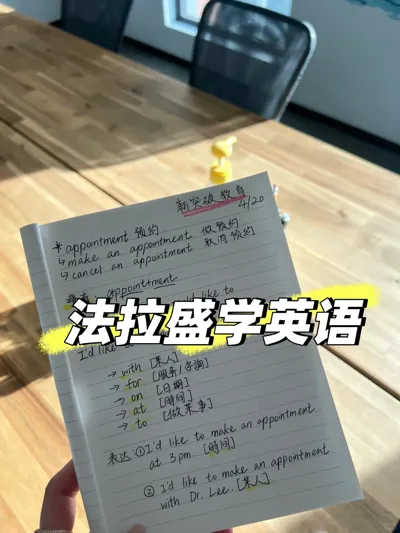 新突破教育
4/20
* appointment 预约
↳ make an appointment 做预约
↳ cancel an appointment 取消预约
appointment
like to
法拉盛学英语
I'd like
→ with [某人]
→ for [服务/咨询]
→ on [日期]
→ at [时间]
→ to [做某事]
表达 ① I'd like to make an appointment
at 3 pm. [时间]
② I'd like to make an appointment
with Dr. Lee. [某人]